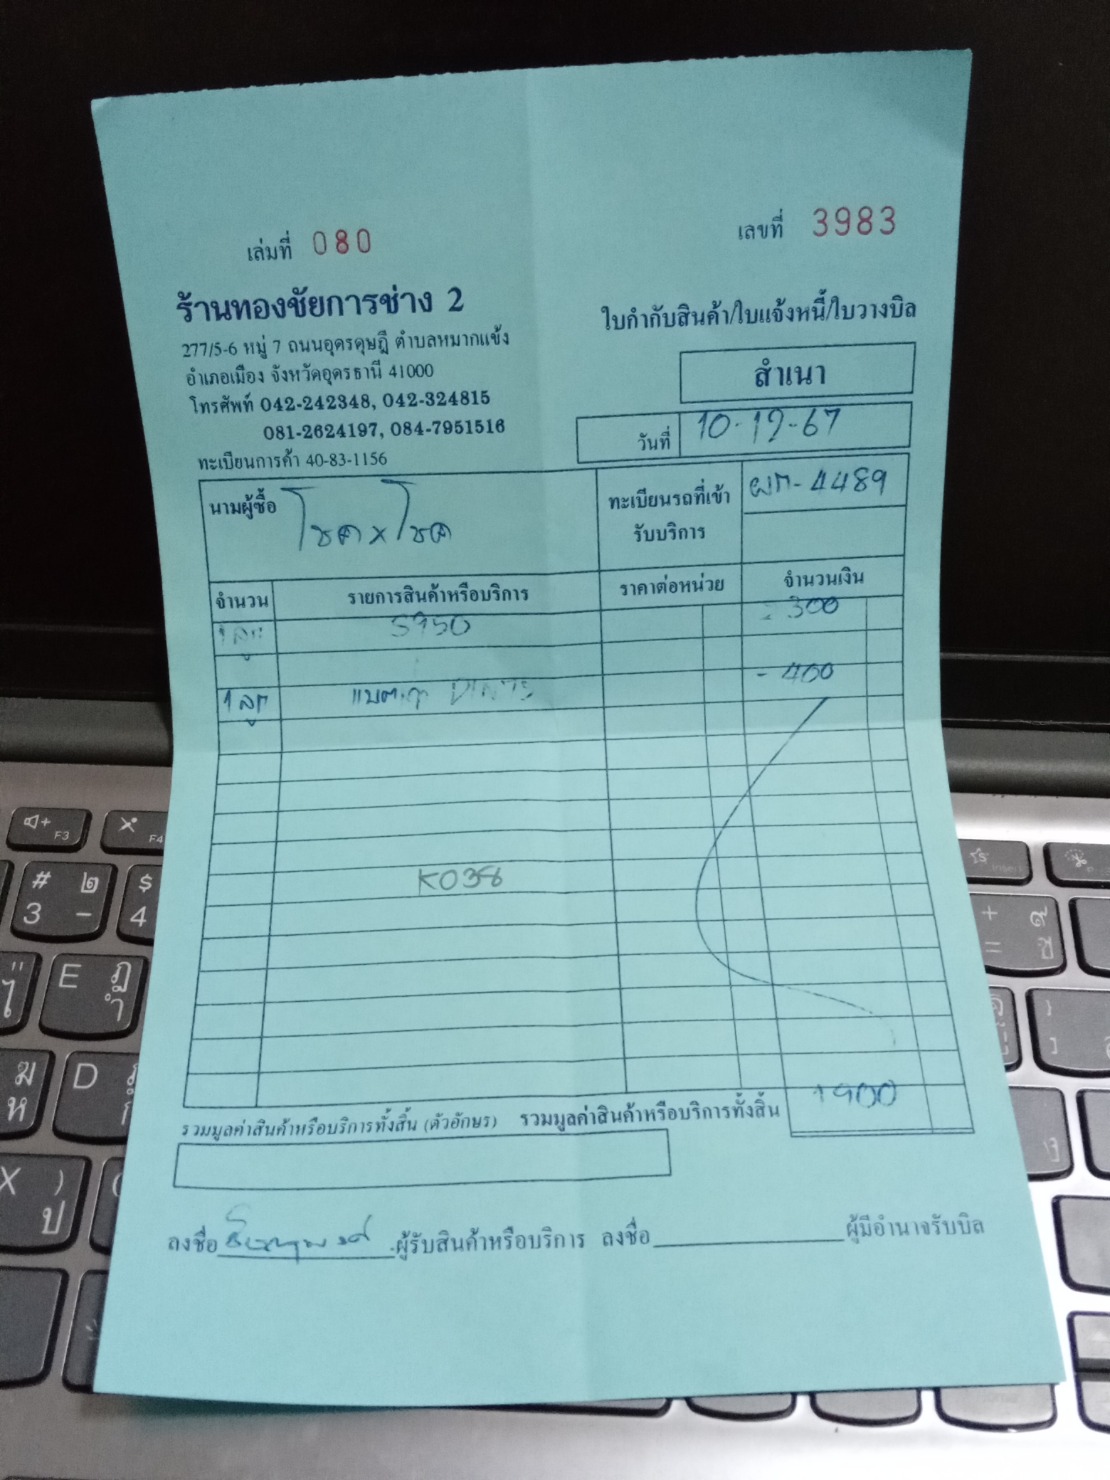 เล่มที่ 080
เลขที่ 3983
ร้านทองชัยการช่าง 2
277/5-6 หมู่ 7 ถนนอุดรดุษฎี ตำบลหมากแข้ง
อำเภอเมือง จังหวัดอุดรธานี 41000
โทรศัพท์ 042-242348, 042-324815
081-2624197, 084-7951516
ทะเบียนการค้า 40-83-1156
ใบกำกับสินค้า/ใบแจ้งหนี้/ใบวางบิล
สำเนา
วันที่ 10-12-67
นามผู้ซื้อ โชคxโชค
ทะเบียนรถที่เข้า
รับบริการ
ผก-4489
จำนวน รายการสินค้าหรือบริการ ราคาต่อหน่วย จำนวนเงิน
1 ลูก - 300
1 ลูก - 400
K038
รวมมูลค่าสินค้าหรือบริการทั้งสิ้น (ตัวอักษร) รวมมูลค่าสินค้าหรือบริการทั้งสิ้น 1900
ลงชื่อ ผู้รับสินค้าหรือบริการ ลงชื่อ ผู้มีอำนาจรับบิล
# ๒
3 -
$
4
F3
F4
+ ๙
= ช
E ฎ
ำ
ฆ
ห
D
X )
ป